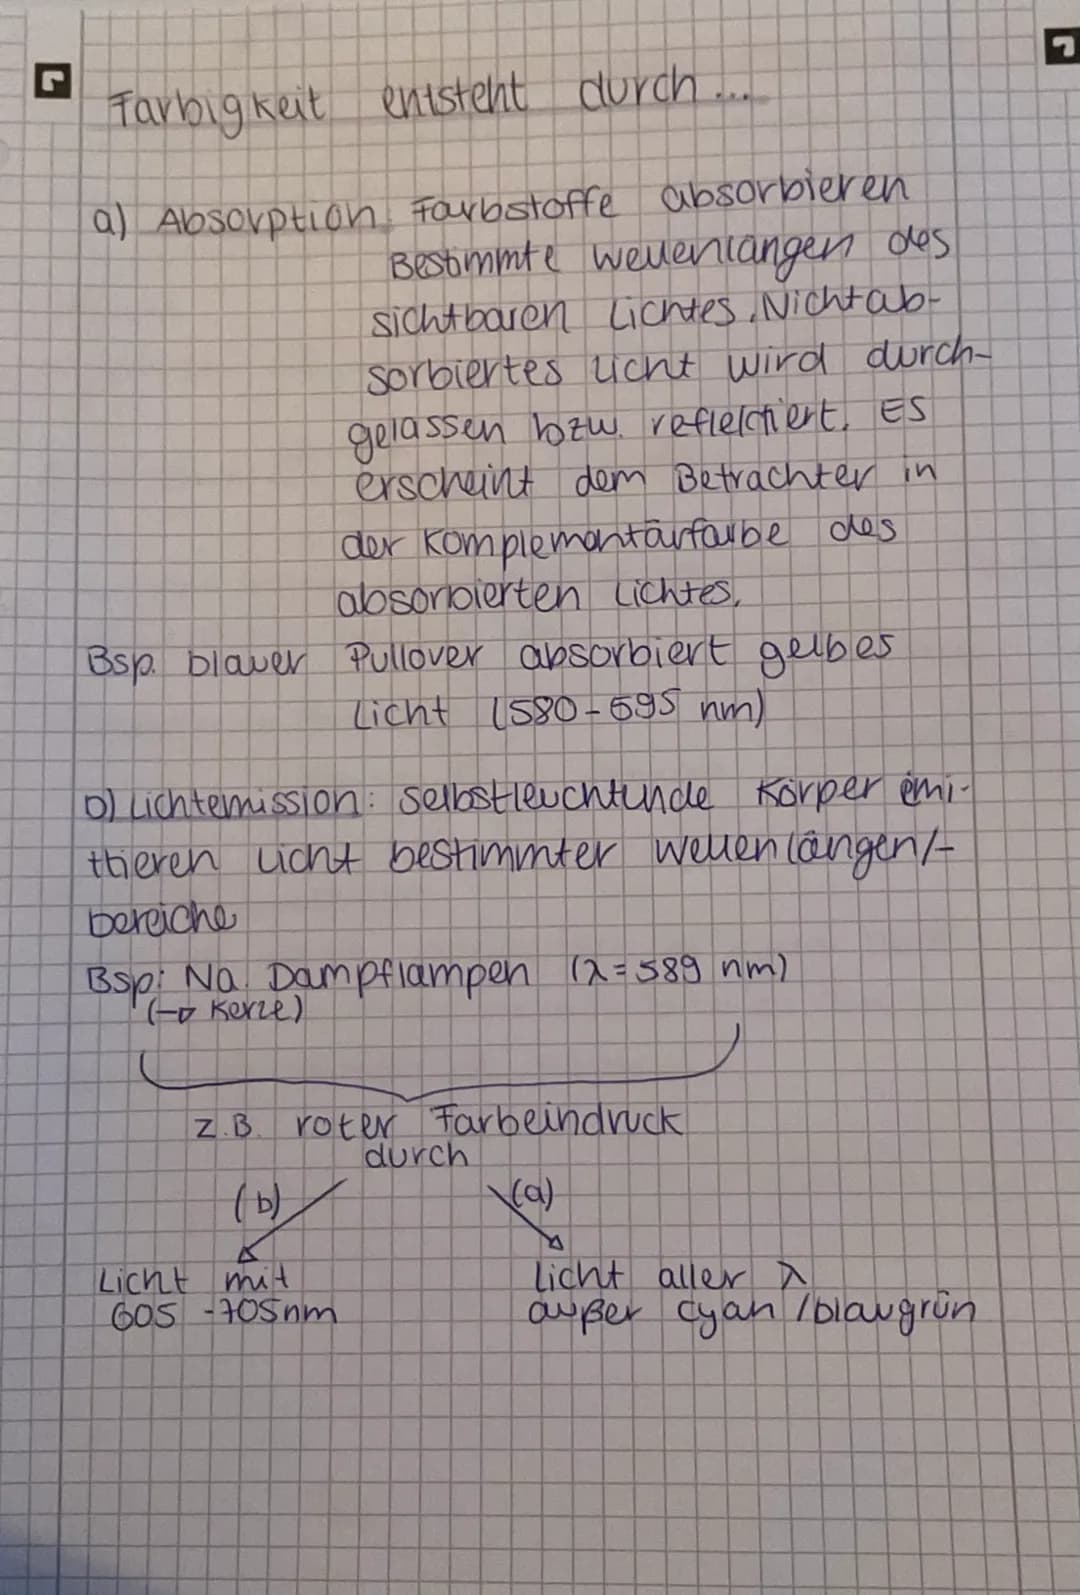 Farbigkeit entsteht durch...
a) Absorption: Farbstoffe absorbieren
Bestimmte Wellenlängen des
sichtbaren Lichtes. Nichtab-
sorbiertes Licht wird durch-
gelassen bzw. reflektiert. Es
erscheint dem Betrachter in
der Komplementärfarbe des
absorbierten Lichtes.
Bsp. blauer Pullover absorbiert gelbes
Licht (580-595 nm)
b) Lichtemission: selbstleuchtende Körper emi-
ttieren Licht bestimmter Wellenlängen/-
bereiche
Bsp: Na Dampflampen (λ=589 nm)
(→ Kerze)
z.B. roter Farbeindruck
durch
(b) (a)
Licht mit Licht aller λ
605 -705nm außer cyan/blaugrün